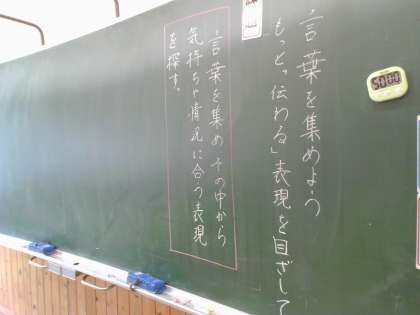 言葉を集めよう
もっと「伝わる」表現を目ざして
言葉を集め、その中から
気持ちや情況に合う表現
を探す。